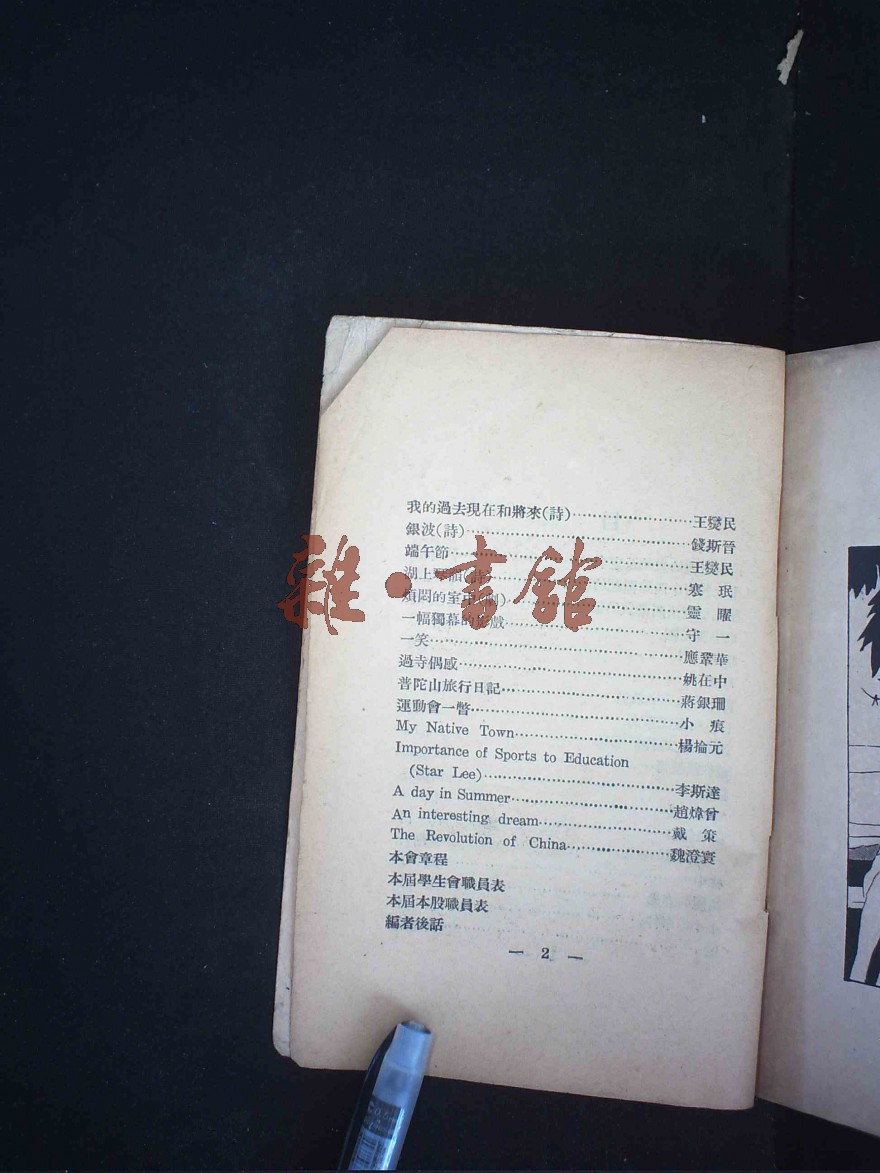 我的過去現在和將來(詩)……王燮民
銀波(詩)……錢斯晉
端午節……王燮民
湖上 (詩)……寒 珉
煩悶的室 (劇)……靈 曜
一幅獨幕的影戲……守 一
一笑……應鞏華
過寺偶感……姚在中
普陀山旅行日記……蔣銀珊
運動會一瞥……小 痕
My Native Town……楊掄元
Importance of Sports to Education
(Star Lee)……李斯達
A day in Summer……趙煒曾
An interesting dream……戴 策
The Revolution of China……魏澄寰
本會章程
本屆學生會職員表
本屆本股職員表
編者後話
— 2 —
雜·書館